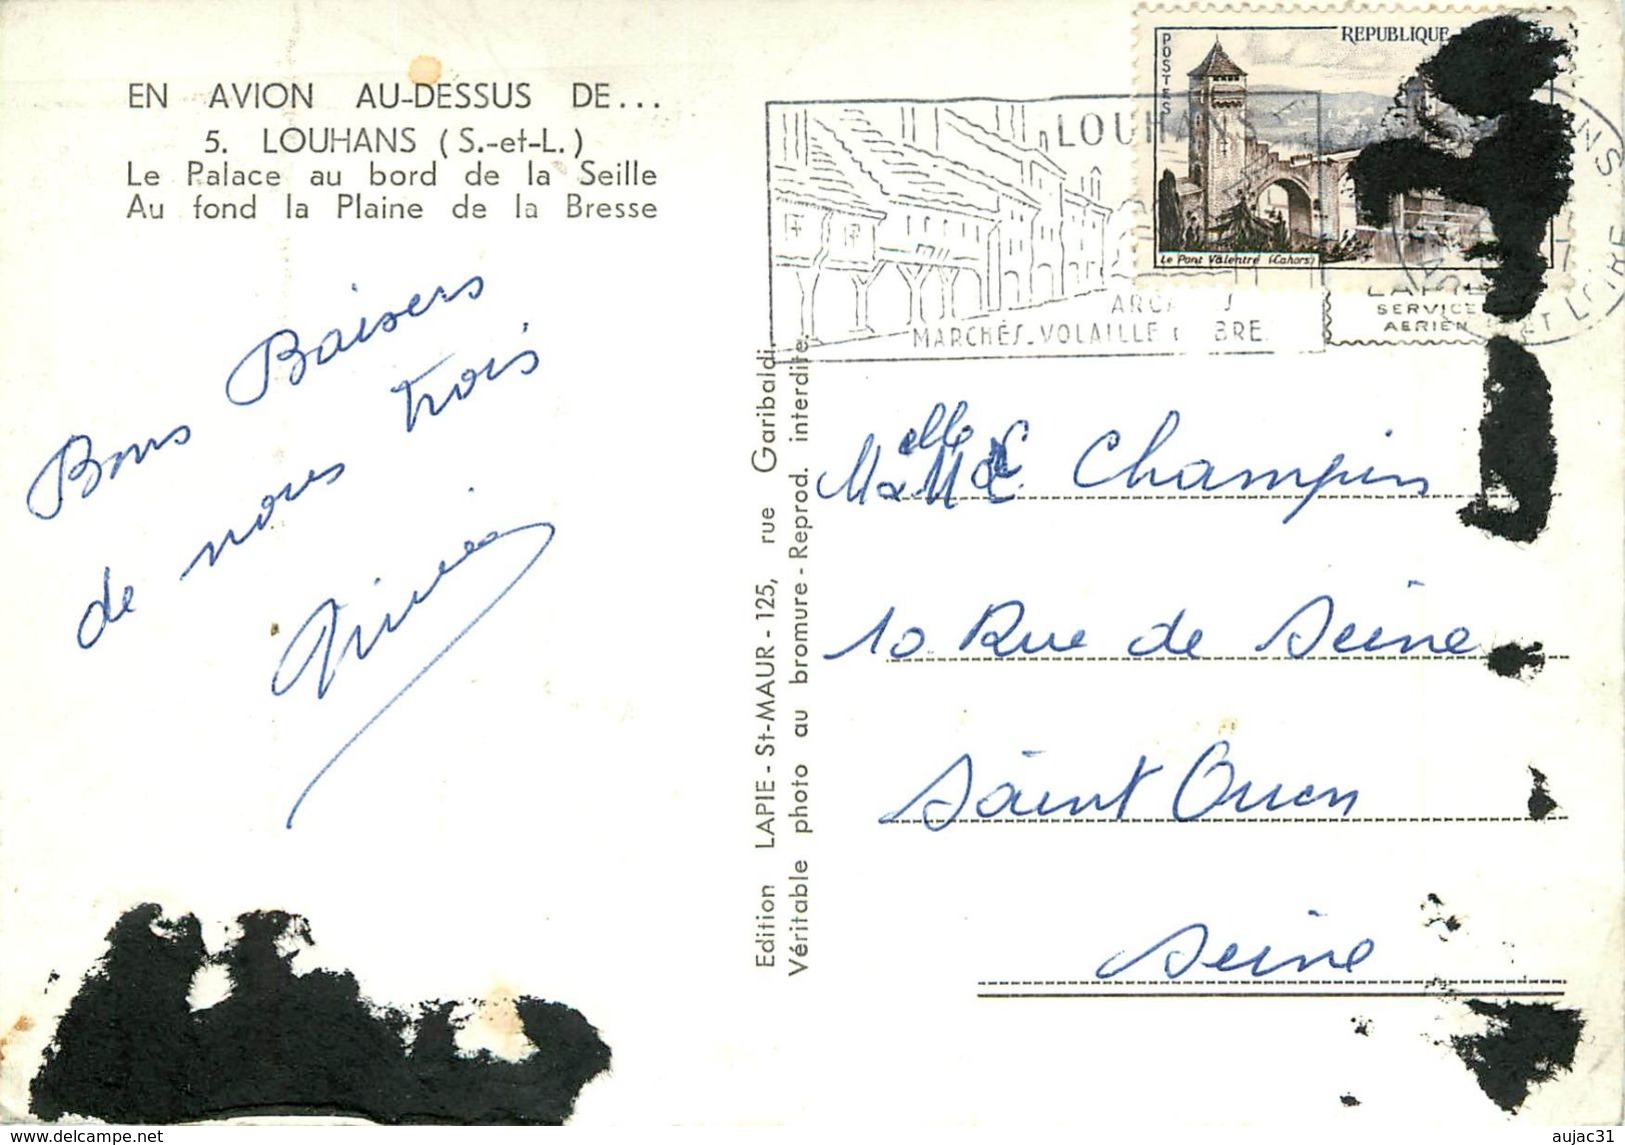 EN AVION AU-DESSUS DE...
5. LOUHANS (S.-et-L.)
Le Palace au bord de la Seille
Au fond la Plaine de la Bresse
Bons Baisers
de nous trois
Edition LAPIE - St-MAUR - 125, rue Garibaldi.
Véritable photo au bromure - Reprod. interdite.
LOUHANS
MARCHÉS. VOLAILLE
POSTES
REPUBLIQUE
Le Pont Valentré (Cahors)
SERVICE
AERIEN
ET LOIRE
Champin
10 Rue de Seine
Saint Ouen
Seine
delcampe.net
aujac31